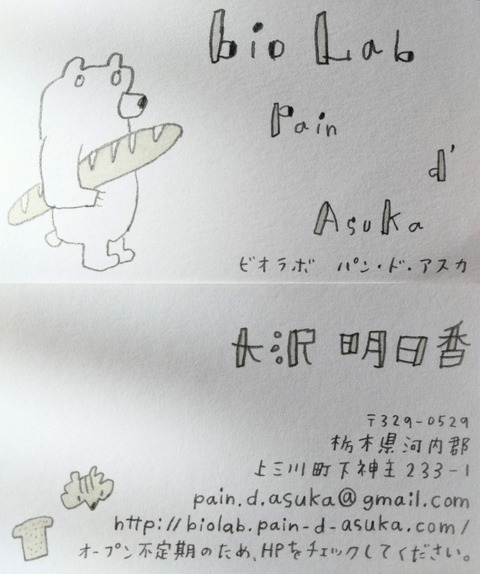 bio Lab
Pain
d'
Asuka
ビオラボ パン・ド・アスカ
大沢 明日香
〒329-0529
栃木県河内郡
上三川町下神主233-1
pain.d.asuka@gmail.com
http://biolab.pain-d-asuka.com/
オープン不定期のため、HPをチェックしてください。